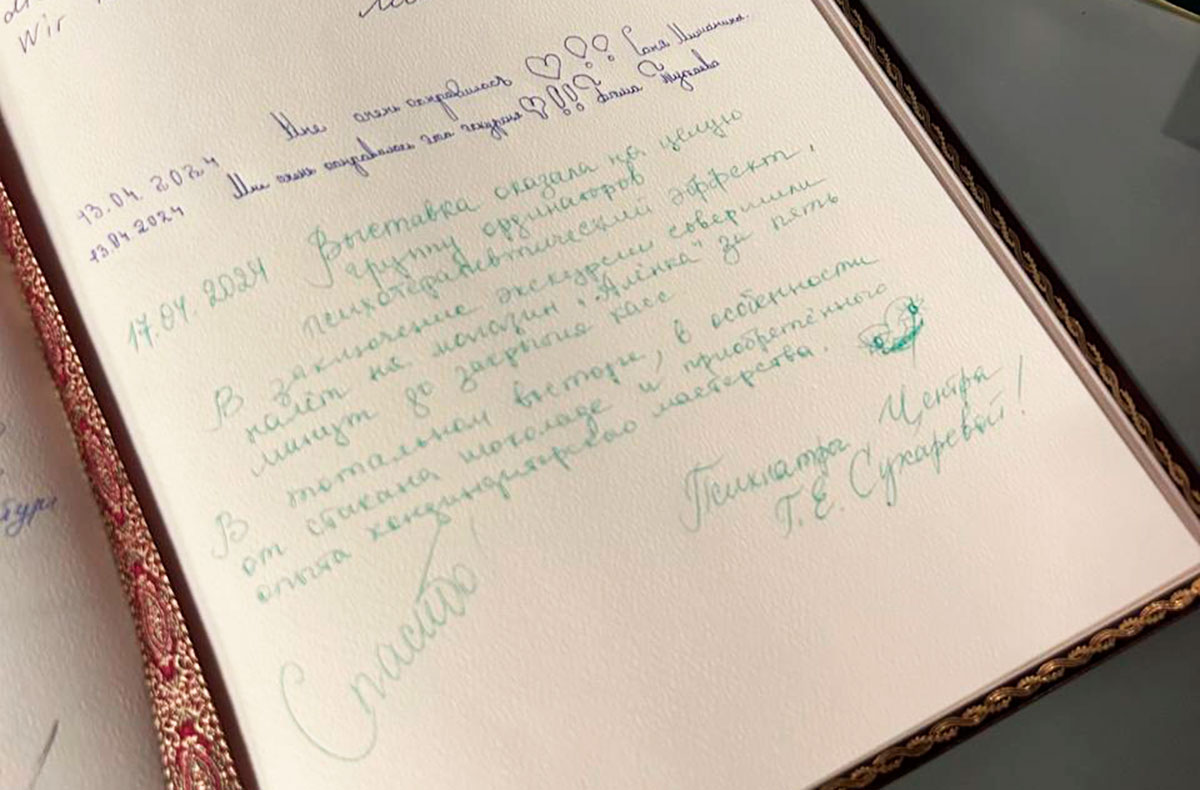 Wir
13.04.2024 Мне очень понравилось Саня
13.04.2024 Мне очень понравилась эта
17.04.2024 Выставка оказала на целую
группу ординаторов
психотерапевтический эффект.
В заключение экскурсии совершили
налёт на магазин "Алёнка" за пять
минут до закрытия касс
В тотальном восторге, в особенности
от стакана шоколаде и приобретённого
опыта кондиндитерского мастерства.
Психиатры Центра
Г. Е. Сухаревой!
Спасибо!